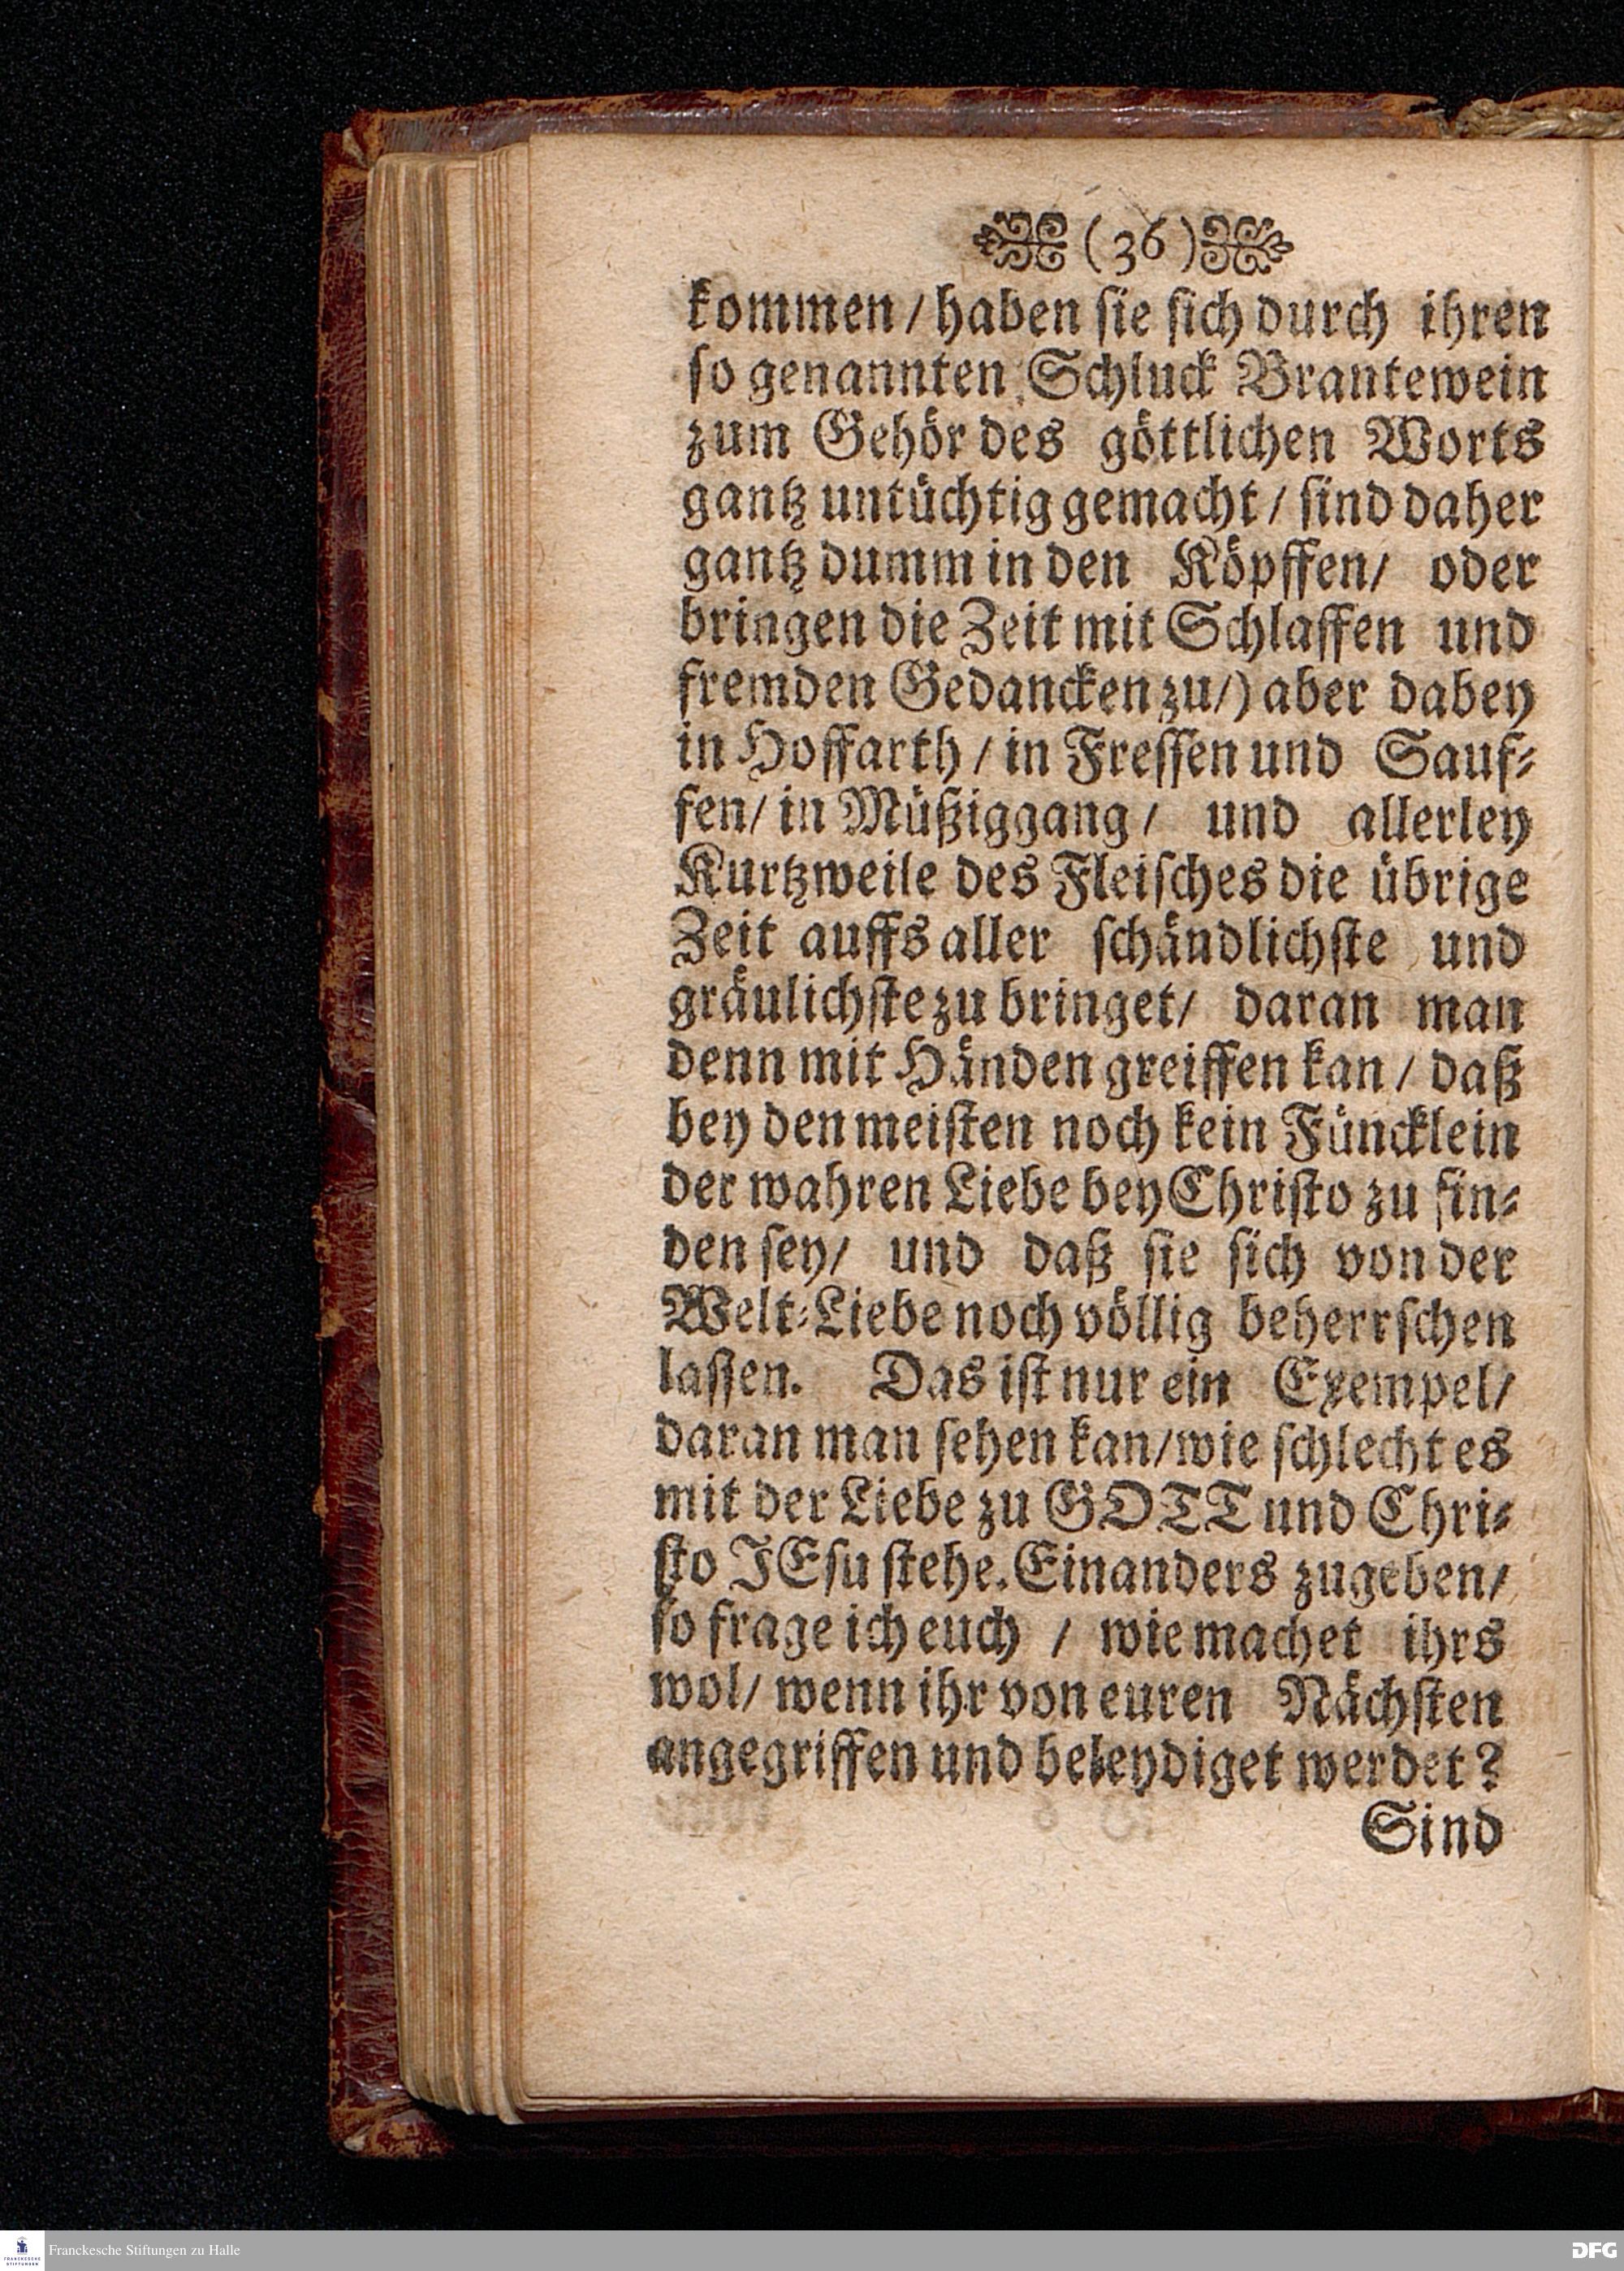 (36)
kommen / haben sie sich durch ihren
so genannten Schluck Brantewein
zum Gehör des göttlichen Worts
gantz untüchtig gemacht / sind daher
gantz dumm in den Köpffen / oder
bringen die Zeit mit Schlaffen und
fremden Gedancken zu /) aber dabey
in Hoffarth / in Fressen und Sauf-
fen / in Müßiggang / und allerley
Kurtzweile des Fleisches die übrige
Zeit auffs aller schändlichste und
gräulichste zu bringet / daran man
denn mit Händen greiffen kan / daß
bey den meisten noch kein Füncklein
der wahren Liebe bey Christo zu fin-
den sey / und daß sie sich von der
Welt-Liebe noch völlig beherrschen
lassen. Das ist nur ein Exempel /
daran man sehen kan / wie schlecht es
mit der Liebe zu GOTT und Chri-
sto JEsu stehe. Ein anders zu geben /
so frage ich euch / wie machet ihrs
wol / wenn ihr von euren Nächsten
angegriffen und beleydiget werdet?
Sind
FRANCKESCHE STIFTUNGEN
Franckesche Stiftungen zu Halle
DFG